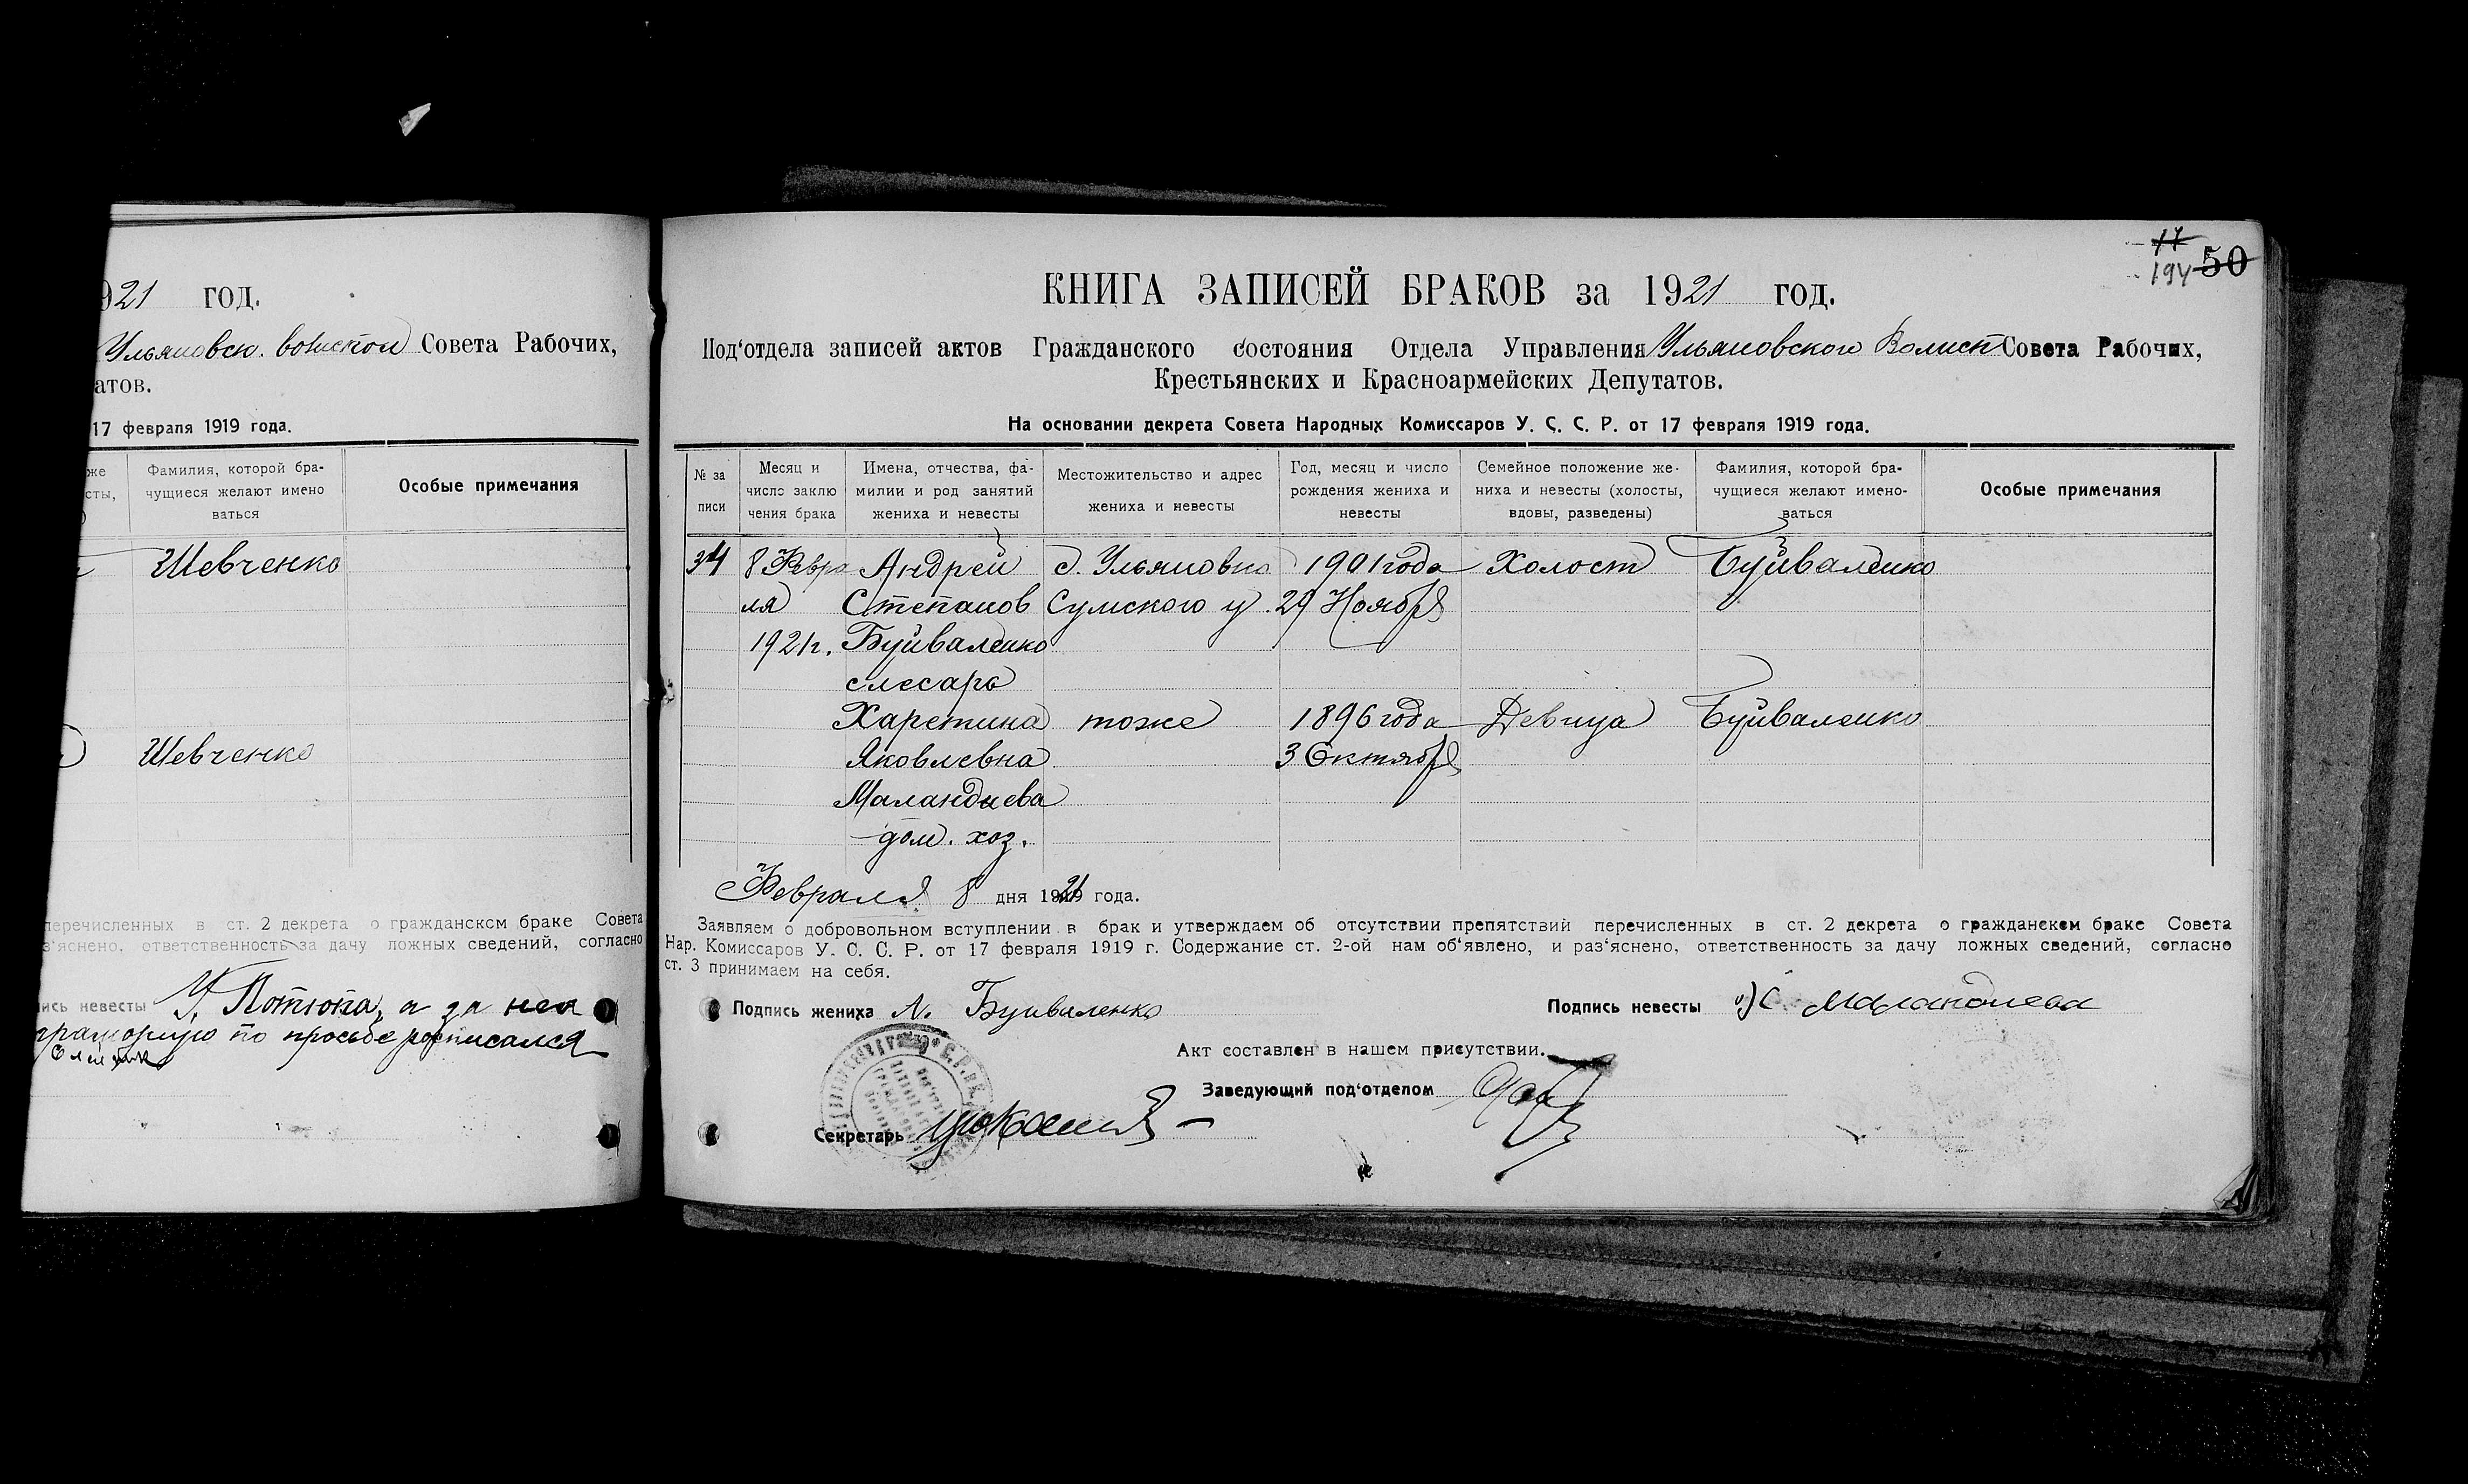 21 год.
Ульяновск. волиспол Совета Рабочих,
атов.
17 февраля 1919 года.
же
сты,
)
Фамилия, которой бра-
чущиеся желают имено
ваться
Особые примечания
Шевченко
Шевченко
перечисленных в ст. 2 декрета о гражданском браке Совета
з'яснено, ответственность за дачу ложных сведений, согласно
ись невесты У. Потюпа, а за нея
грамотную по просьбе росписался
17
194 50
КНИГА ЗАПИСЕЙ БРАКОВ за 1921 год.
Под'отдела записей актов Гражданского состояния Отдела Управления Ульяновского Волисп Совета Рабочих,
Крестьянских и Красноармейских Депутатов.
На основании декрета Совета Народных Комиссаров У. С. С. Р. от 17 февраля 1919 года.
№ за
писи
Месяц и
число заклю
чения брака
Имена, отчества, фа-
милии и род занятий
жениха и невесты
Местожительство и адрес
жениха и невесты
Год, месяц и число
рождения жениха и
невесты
Семейное положение же-
ниха и невесты (холосты,
вдовы, разведены)
Фамилия, которой бра-
чущиеся желают имено-
ваться
Особые примечания
34 8 Февра Андрей с. Ульяновка 1901 года Холост Буйваленко
ля Степанов Сумского у. 29 Ноября
1921 г. Буйваленко
слесарь
Харетина тоже 1896 года Девица Буйваленко
Яковлевна 3 Октября
Маландиева
дом. хоз.
Февраля 8 дня 1921 года.
Заявляем о добровольном вступлении в брак и утверждаем об отсутствии препятствий перечисленных в ст. 2 декрета о гражданском браке Совета
Нар. Комиссаров У. С. С. Р. от 17 февраля 1919 г. Содержание ст. 2-ой нам об'явлено, и раз'яснено, ответственность за дачу ложных сведений, согласно
ст. 3 принимаем на себя.
Подпись жениха А. Буйваленко
Подпись невесты Х Маландиева
Акт составлен в нашем присутствии.
Заведующий под'отделом
Секретарь